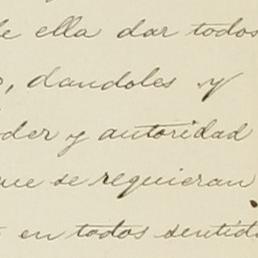 de ella dar todos
, dandoles y
oder y autoridad
que se requieran
en todos sentido